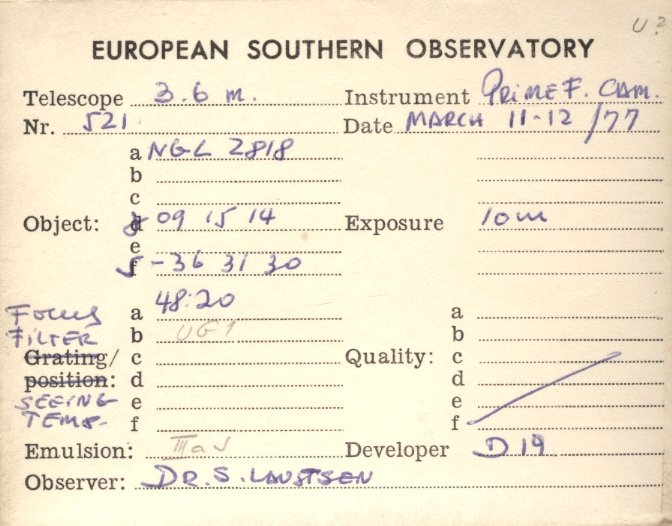 U?
EUROPEAN SOUTHERN OBSERVATORY
Telescope 3.6 m. Instrument PRIME F. CAM.
Nr. 521 Date MARCH 11-12 /77
a NGC 2818
b
c
Object: d 09 15 14 Exposure 10m
e
f - 36 31 30
Focus a 48.20 a
FILTER b UG1 b
Grating/ c Quality: c
position: d d
SEEING e e
TEMP. f f
Emulsion: IIIaJ Developer D19
Observer: DR. S. LAUSTSEN